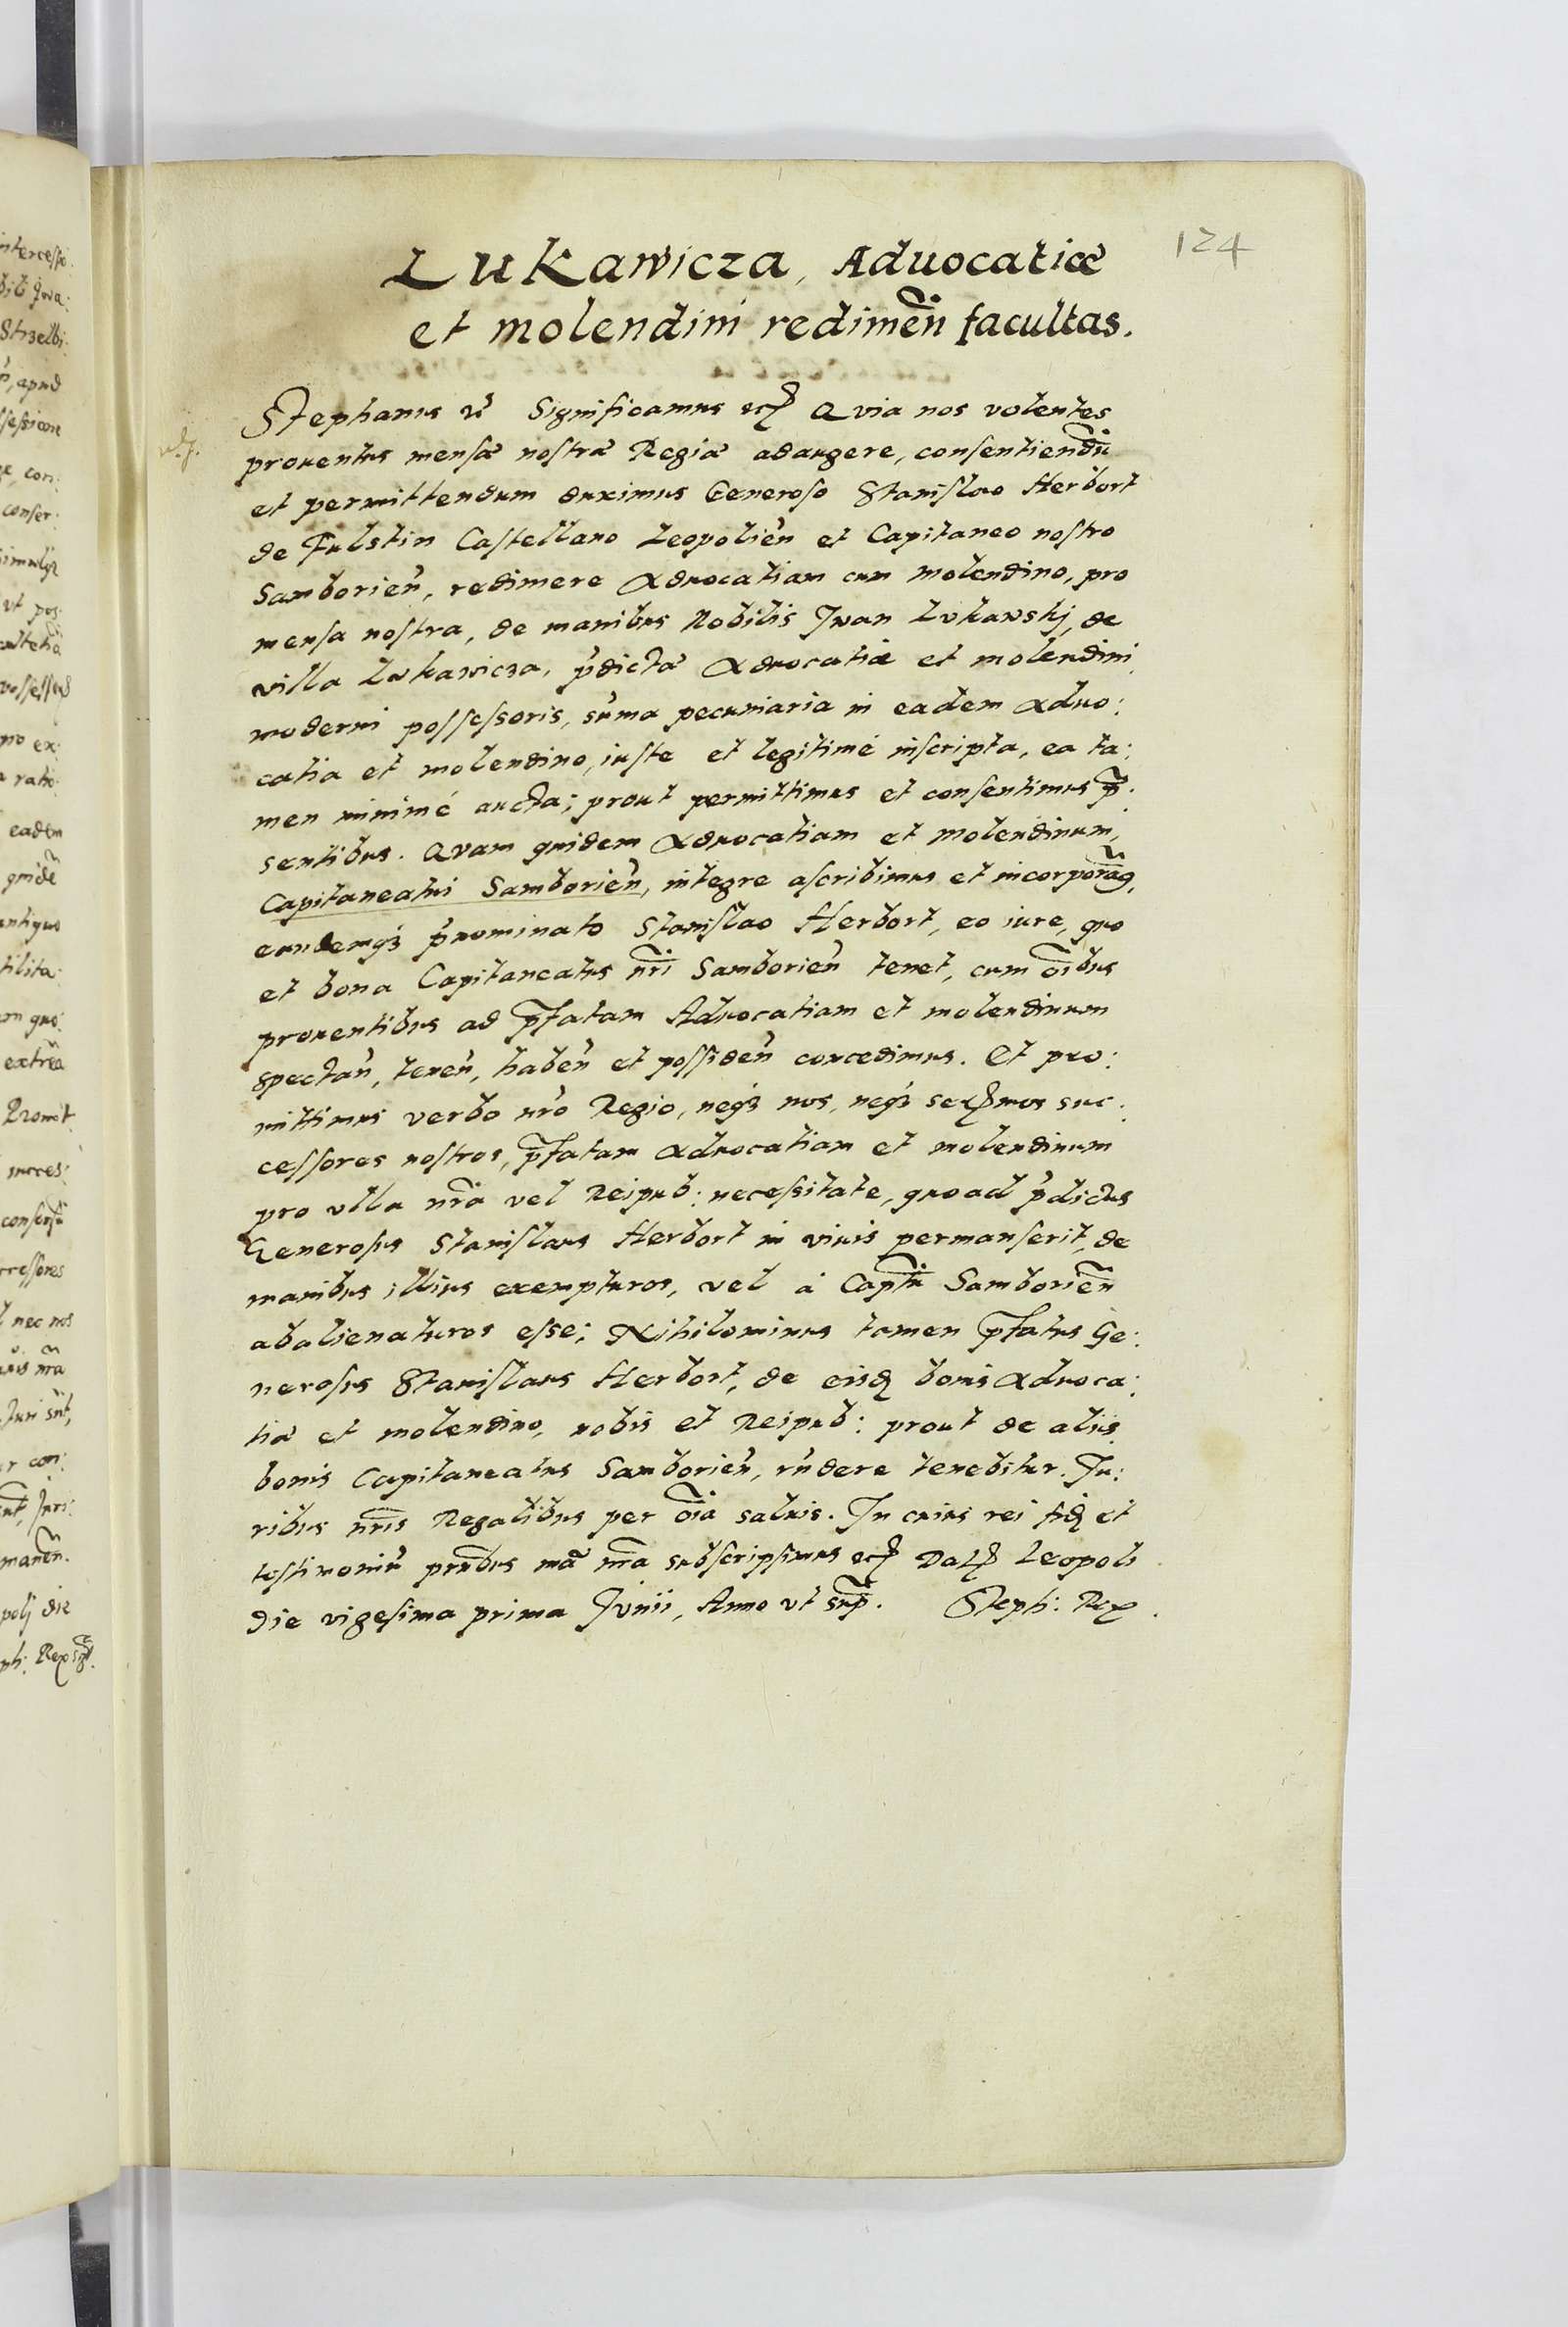 124
Lukawicza, Aduocatiæ
et molendini redimeñ facultas.
Stephanus Significamus Quia nos volentes
prouentus mensæ nostræ Regiæ adaugere, consentiendũ
et permittendum duximus Generoso Stanislao Herbort
de Fulstin Castellano Leopolieñ et Capitaneo nostro
Samborieñ, redimere Aduocatiam cum molendino, pro
mensa nostra, de manibus Nobilis Iwan Lukawskj, de
villa Lukawicza, p̃dictæ Aduocatiæ et molendini
moderni possessoris, sũma pecuniaria in eadem Aduo:
catia et molendino, iuste et legitimé inscripta, ea ta:
men minimé aucta; prout permittimus et consentimus p̃:
sentibus. Quam quidem Aduocatiam et molendinum,
Capitaneatui Samborieñ, integre ascribimus et incorporaq̃,
eundemq3 p̃nominato Stanislao Herbort, eo iure, quo
et bona Capitaneatus ñri Samborieñ tenet, cum oĩbus
prouentibus ad p̃fatam Aduocatiam et molendinum
spectañ, teneñ, habeñ et possideñ concedimus. Et pro:
mittimus verbo ñro Regio, neq3 nos, neq3 sereñmos suc:
cessores nostros, p̃fatam Aduocatiam et molendinum
pro vlla ñra vel Reipub: necessitate, quoad p̃dictus
Generosus Stanislaus Herbort in viuis permanserit, de
manibus illius exempturos, vel á Captũ Samborieñ
abalienaturos esse; Nihilominus tamen p̃fatus Ge:
nerosus Stanislaus Herbort, de eisd bonis Aduoca:
tiæ et molendino, nobis et Reipub: prout de aliis
bonis Capitaneatus Samborieñ, rñdere tenebitur. Iu:
ribus ñris Regalibus per oĩa saluis. In cuius rei fid et
testimoniũ pñtibus mã ñra subscripsimus Leopoli
die vigesima prima Iunii, Anno vt sup̃. Steph: Rex.